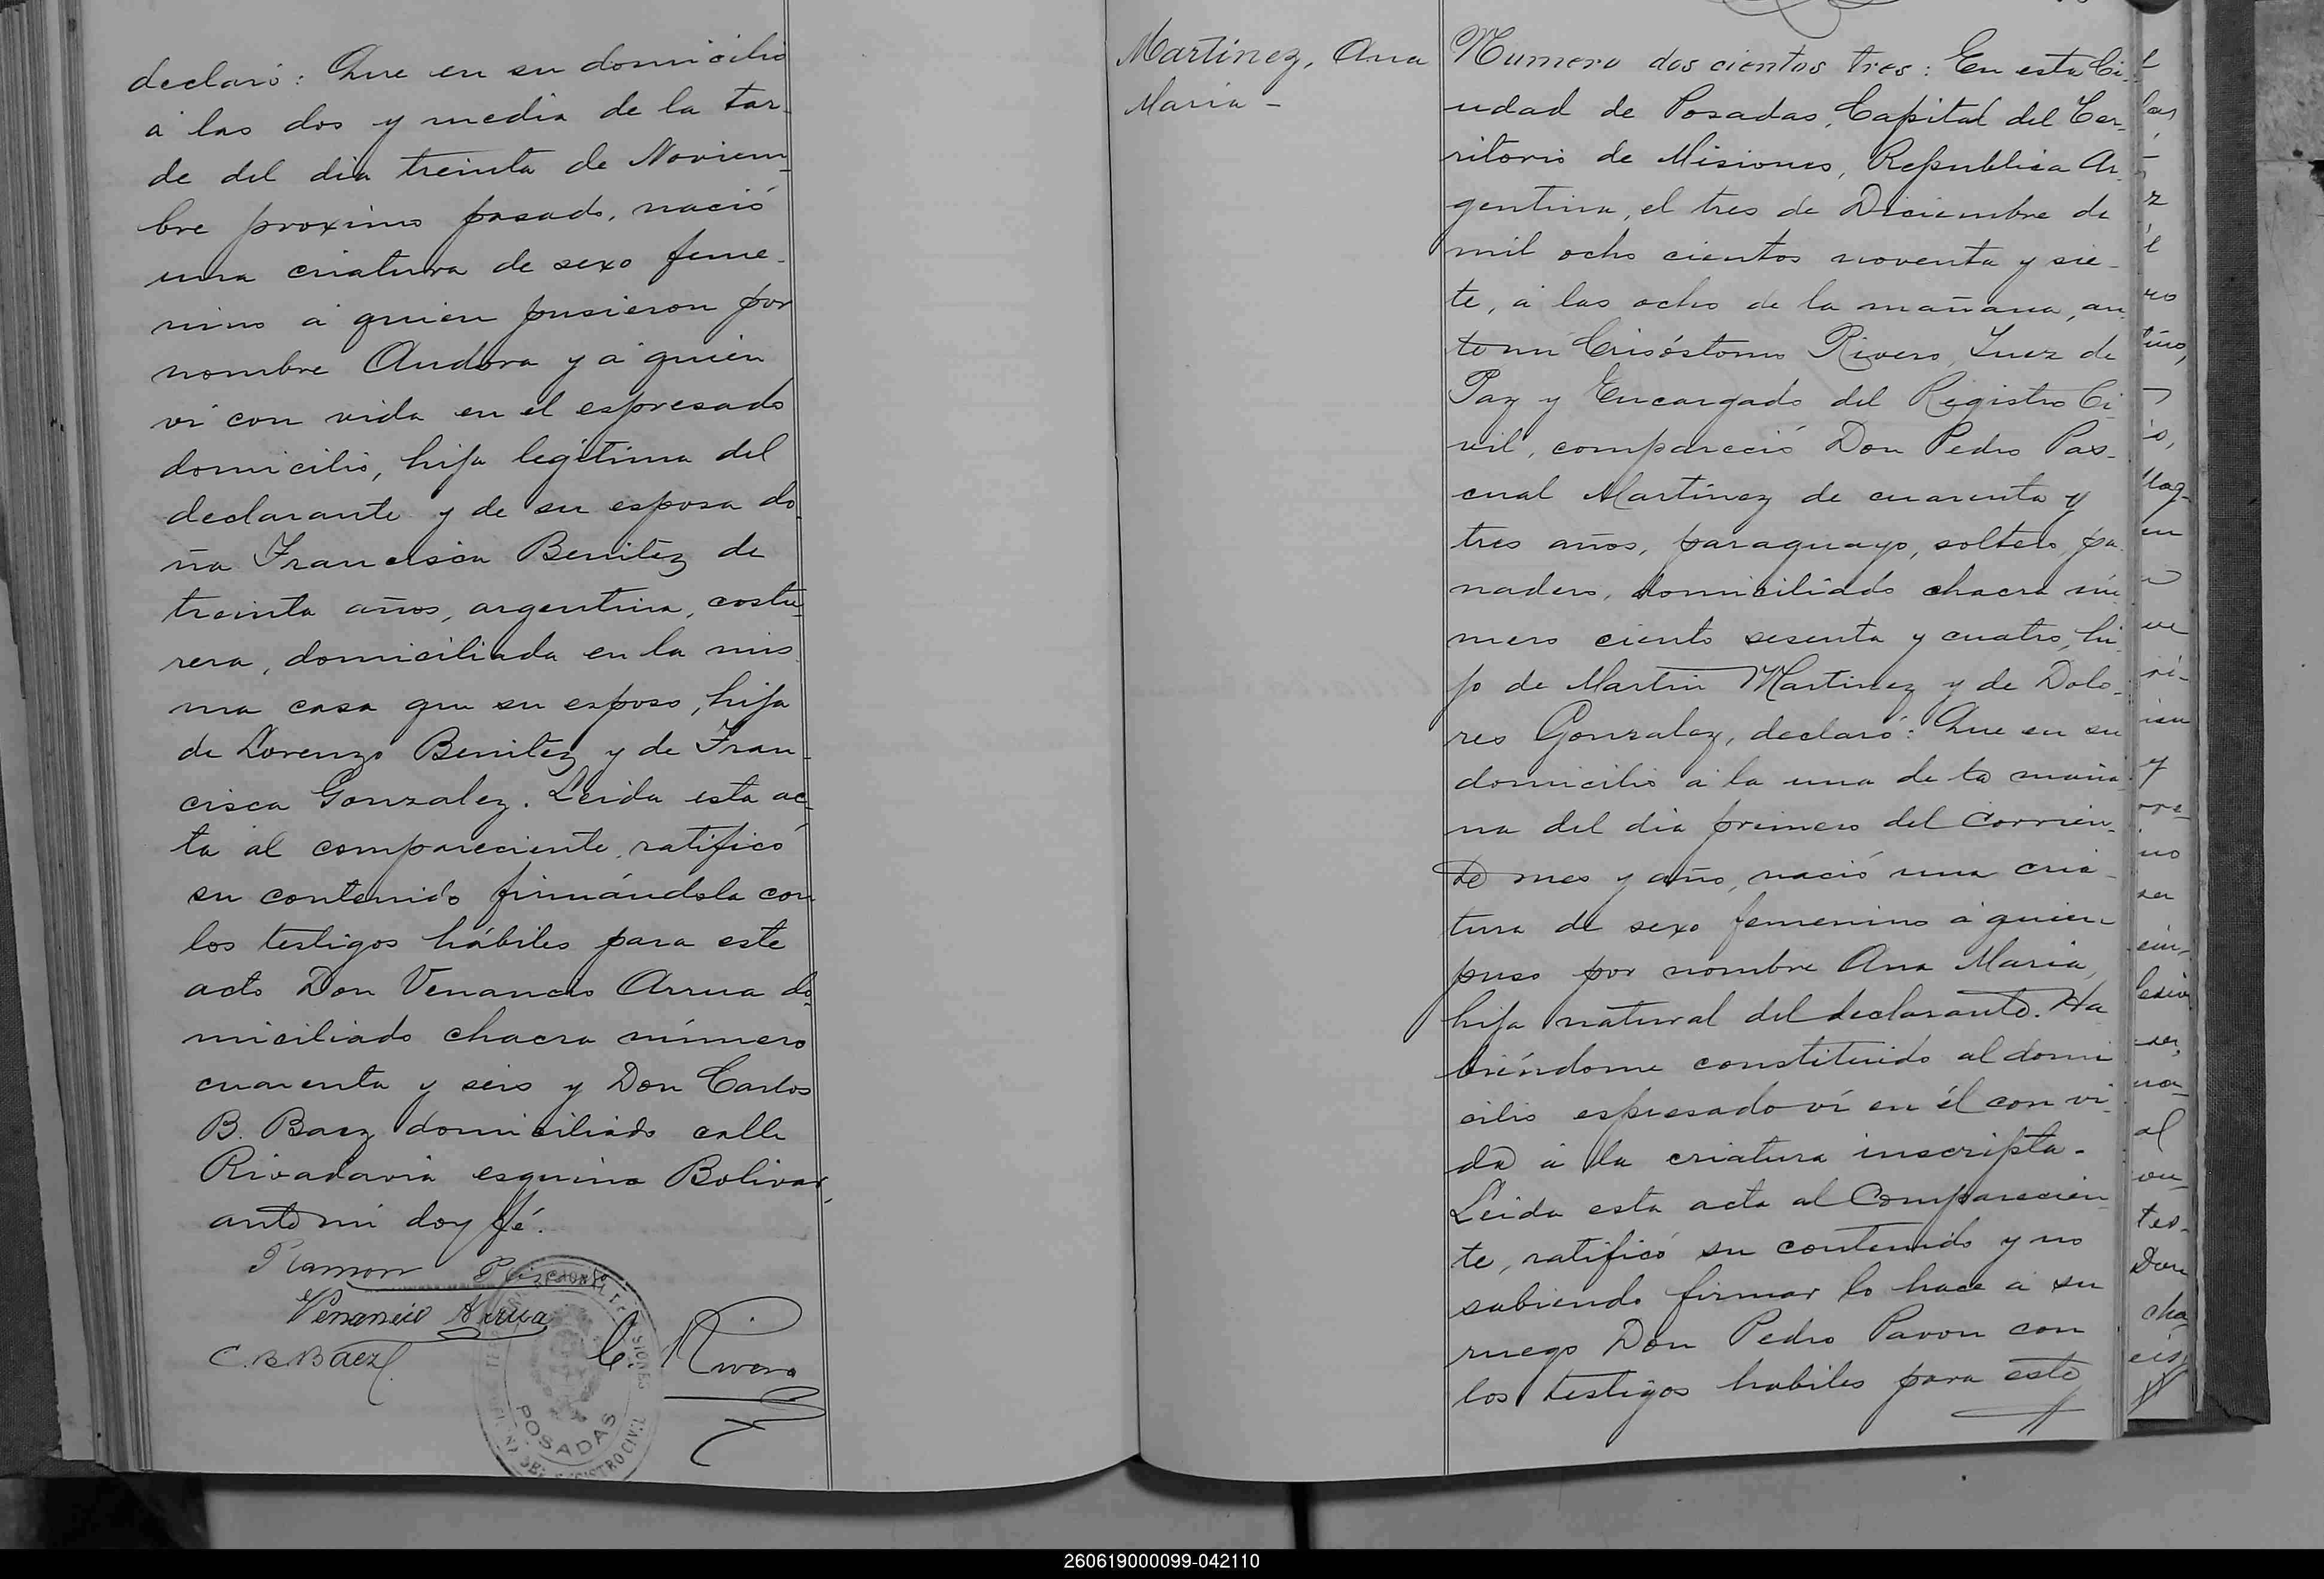 declaró: Que en su domicilio
á las dos y media de la tar-
de del dia treinta de Noviem-
bre proximo pasado, nació
una criatura de sexo feme-
nino á quien pusieron por
nombre Andora y á quien
ví con vida en el espresado
domicilio, hija legitima del
declarante y de su esposa do-
ña Francisca Benitez de
treinta años, argentina, costu-
rera, domiciliada en la mis-
ma casa que su esposo, hija
de Lorenzo Benitez y de Fran-
cisca Gonzalez. Leida esta ac-
ta al compareciente, ratificó
su contenido firmándola con
los testigos hábiles para este
acto Don Venancio Arrua do-
miciliado chacra número
cuarenta y seis y Don Carlos
B. Baez domiciliado calle
Rivadavia esquina Bolivar,
ante mi doy fé.
Ramon
Venancio Arrua
C. B. Báez
C. Rivero
POSADAS
REGISTRO CIVIL
Martinez, Ana
Maria -
Numero dos cientos tres: En esta Ci-
udad de Posadas, Capital del Ter-
ritorio de Misiones, Republica Ar-
gentina, el tres de Diciembre de
mil ocho cientos noventa y sie-
te, á las ocho de la mañana, an-
te mi Crisóstomo Rivero, Juez de
Paz y Encargado del Registro Ci-
vil, compareció Don Pedro Pas-
cual Martinez de cuarenta y
tres años, paraguayo, soltero, pa-
nadero, domiciliado chacra nú-
mero ciento sesenta y cuatro, hi-
jo de Martin Martinez y de Dolo-
res Gonzalez, declaró: Que en su
domicilio á la una de la maña-
na del dia primero del corrien-
te mes y año, nació una cria-
tura de sexo femenino á quien
puso por nombre Ana Maria,
hija natural del declarante. Ha
biéndome constituido al domi
cilio espresado ví en él con vi-
da á la criatura inscripta.
Leida esta acta al Comparecien-
te, ratificó su contenido y no
sabiendo firmar lo hace á su
ruego Don Pedro Pavon con
los testigos habiles para este
260619000099-042110